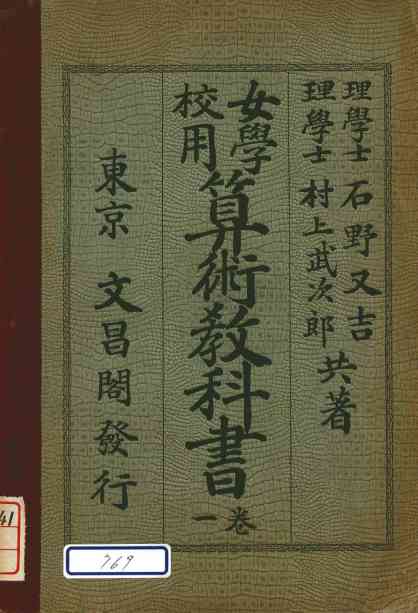 理學士 石野又吉
理學士 村上武次郎
共著
女學校用
算術教科書
卷一
東京 文昌閣發行
41
769